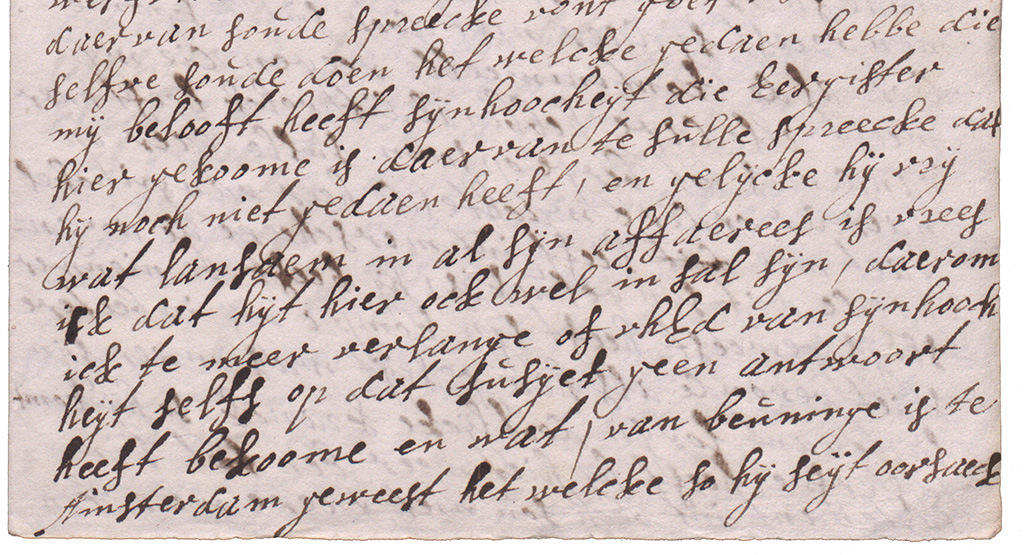 daervan soude spreecke vont
selfve soude doen het welcke gedaen hebbe die
mÿ belooft heeft sÿnhoocheÿt die Eergister
hier gekoome is daervan te sulle spreecke dat
hÿ noch niet gedaen heeft, en gelÿcke hÿ vrÿ
wat lansaem in al sÿn affaerees is vrees
ick dat hÿt hier ock wel in sal sÿn, daerom
ick te meer verlange of uhEd van sÿnhooch
heÿt selfs op dat susÿet geen antwoort
heeft bekoome en wat, van beuninge is te
Amsterdam geweest het welcke so hÿ seÿt oorsaeck